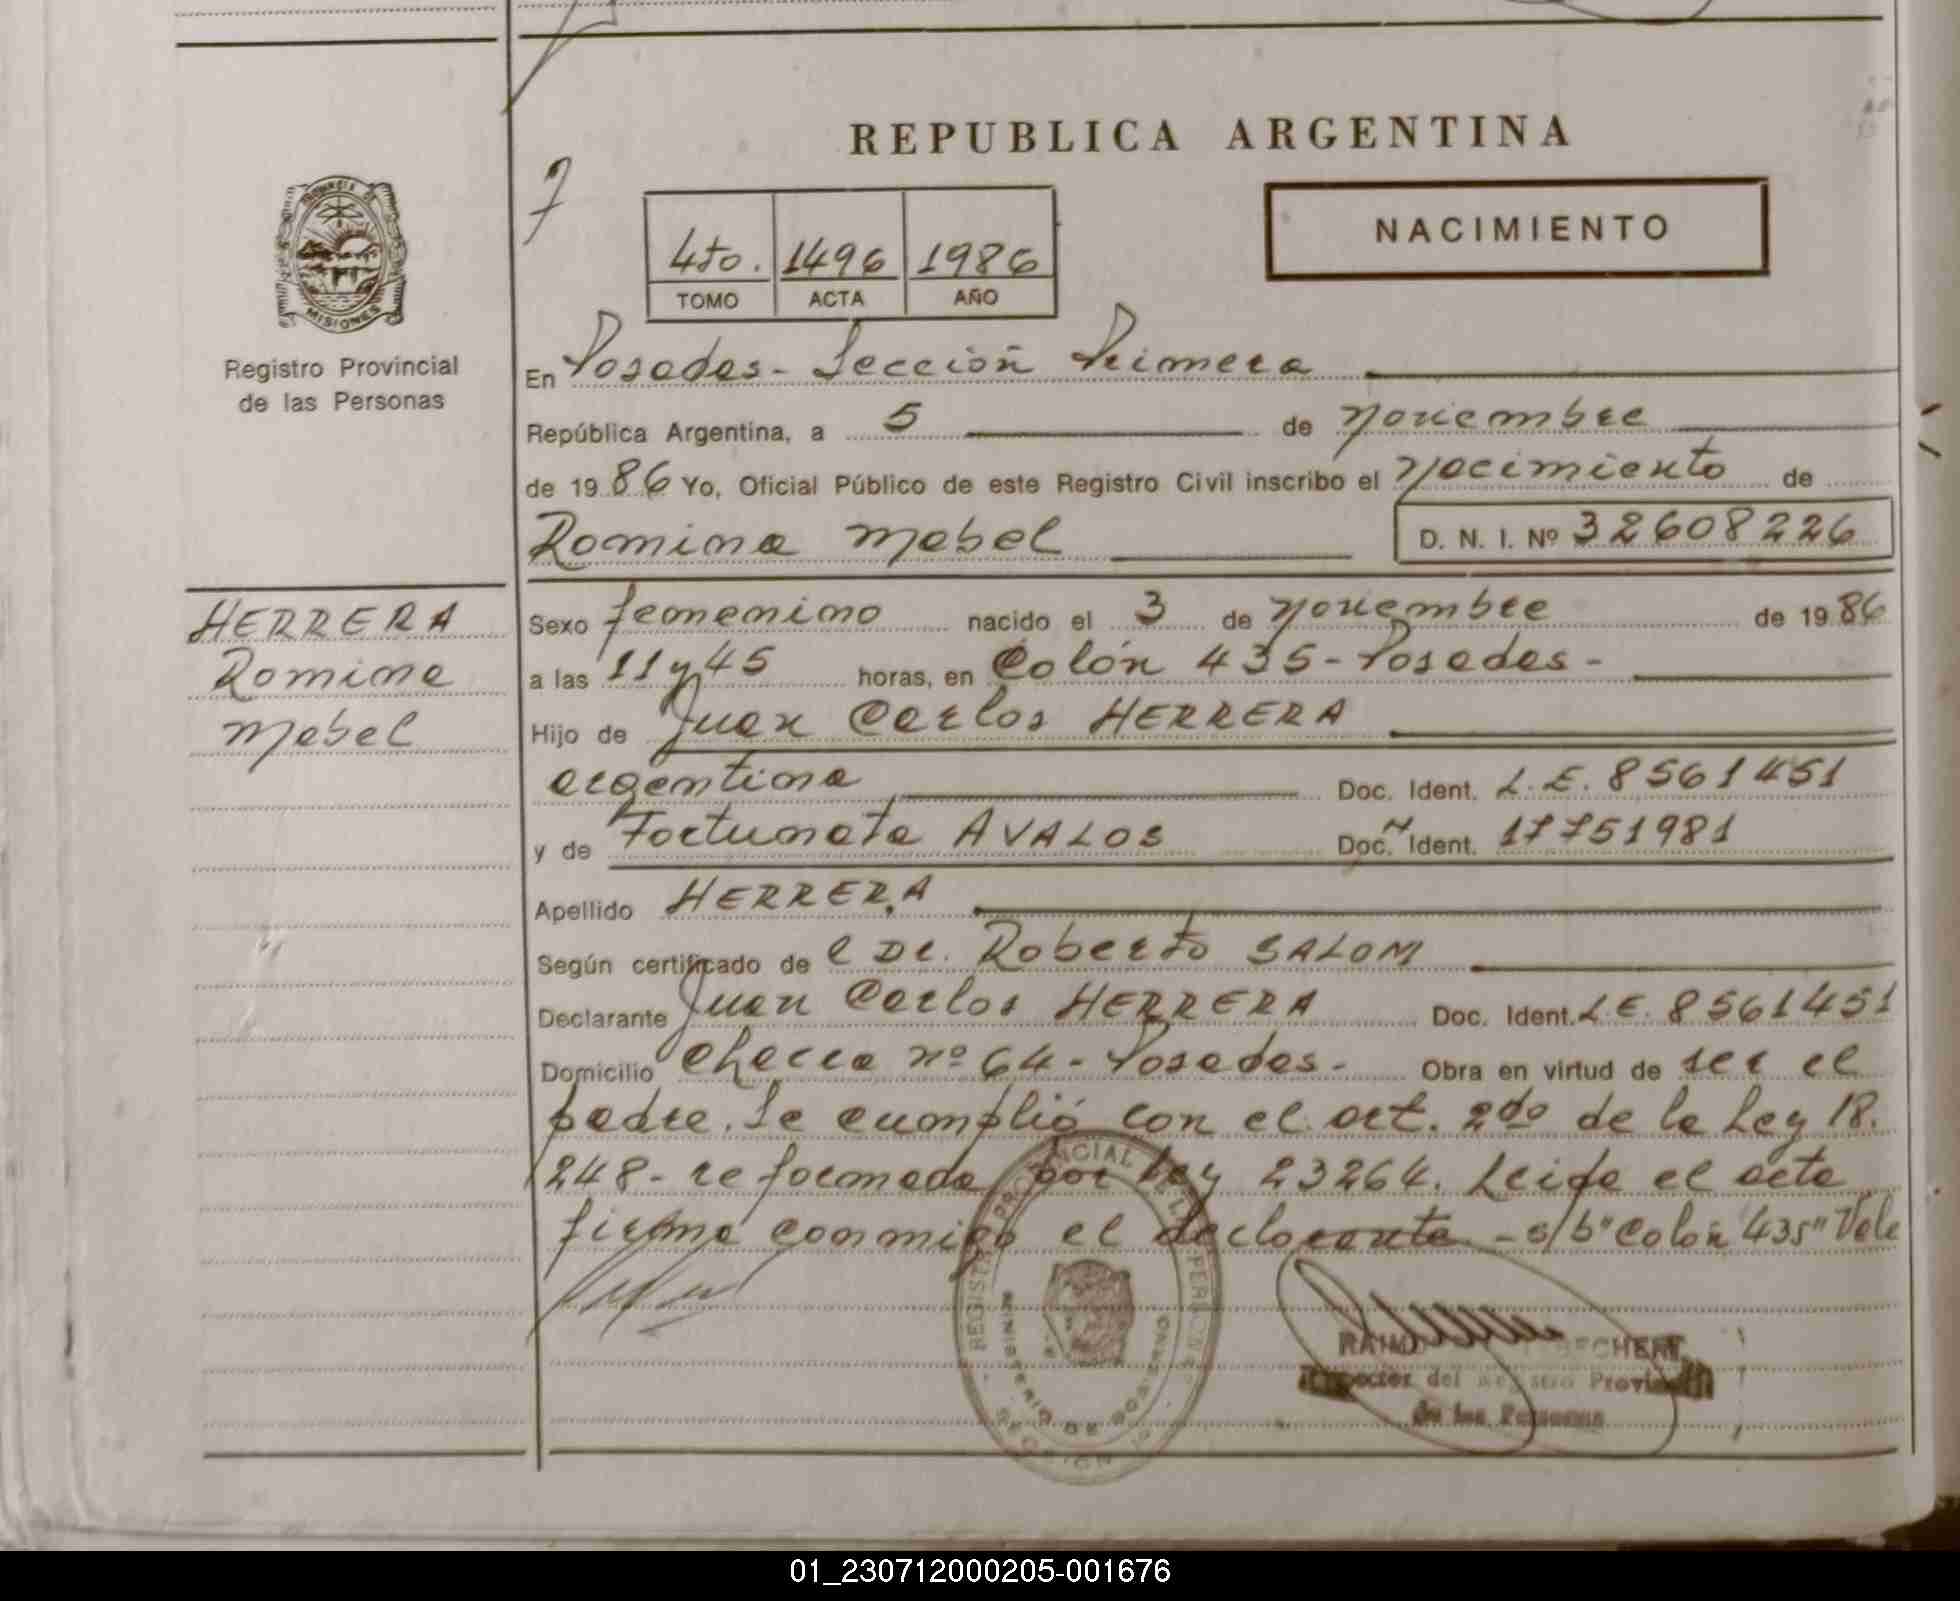 REPUBLICA ARGENTINA
NACIMIENTO
4to. 1496 1986
TOMO ACTA AÑO
PROVINCIA DE
MISIONES
Registro Provincial
de las Personas
En Posadas - Sección Primera
República Argentina, a 5 de Noviembre
de 1986 Yo, Oficial Público de este Registro Civil inscribo el Nacimiento de
Romina Mabel D. N. I. Nº 32608226
HERRERA
Romina
Mabel
Sexo femenino nacido el 3 de Noviembre de 1986
a las 11 y 45 horas, en Colón 435 - Posadas -
Hijo de Juan Carlos HERRERA
argentina Doc. Ident. L.E. 8561451
y de Fortunata AVALOS Doc. Ident. 17751981
Apellido HERRERA
Según certificado de el Dr. Roberto SALOM
Declarante Juan Carlos HERRERA Doc. Ident. L.E. 8561451
Domicilio Checca nº 64 - Posadas - Obra en virtud de ser el
padre. Se cumplió con el art. 2do de la Ley 18.
248 - reformada por Ley 23264. Leida el acta
firma conmigo el declarante - s/b "Colón 435" Vale
REGISTRO PROVINCIAL DE LAS PERSONAS
MINISTERIO DE GOBIERNO
del Registro Provincial
de las Personas
01_230712000205-001676